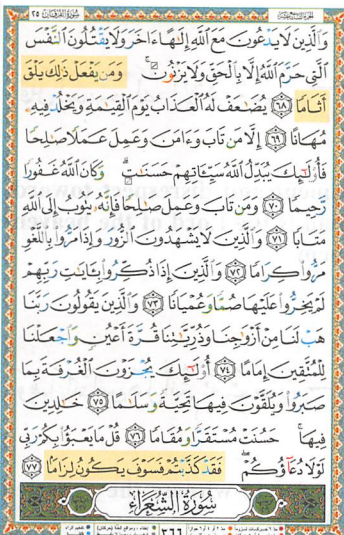 سُورَةُ الفُرْقَان ٢٥
وَالَّذِينَ لَا يَدْعُونَ مَعَ اللَّهِ إِلَٰهًا ءَاخَرَ وَلَا يَقْتُلُونَ النَّفْسَ
الَّتِي حَرَّمَ اللَّهُ إِلَّا بِالْحَقِّ وَلَا يَزْنُونَ ۚ وَمَن يَفْعَلْ ذَٰلِكَ يَلْقَ
أَثَامًا ٦٨ يُضَٰعَفْ لَهُ الْعَذَابُ يَوْمَ الْقِيَٰمَةِ وَيَخْلُدْ فِيهِۦ
مُهَانًا ٦٩ إِلَّا مَن تَابَ وَءَامَنَ وَعَمِلَ عَمَلًا صَٰلِحًا
فَأُو۟لَٰٓئِكَ يُبَدِّلُ اللَّهُ سَيِّـَٔاتِهِمْ حَسَنَٰتٍ ۗ وَكَانَ اللَّهُ غَفُورًا
رَّحِيمًا ٧٠ وَمَن تَابَ وَعَمِلَ صَٰلِحًا فَإِنَّهُۥ يَتُوبُ إِلَى اللَّهِ
مَتَابًا ٧١ وَالَّذِينَ لَا يَشْهَدُونَ الزُّورَ وَإِذَا مَرُّوا۟ بِاللَّغْوِ
مَرُّوا۟ كِرَامًا ٧٢ وَالَّذِينَ إِذَا ذُكِّرُوا۟ بِـَٔايَٰتِ رَبِّهِمْ
لَمْ يَخِرُّوا۟ عَلَيْهَا صُمًّا وَعُمْيَانًا ٧٣ وَالَّذِينَ يَقُولُونَ رَبَّنَا
هَبْ لَنَا مِنْ أَزْوَٰجِنَا وَذُرِّيَّٰتِنَا قُرَّةَ أَعْيُنٍ وَاجْعَلْنَا
لِلْمُتَّقِينَ إِمَامًا ٧٤ أُو۟لَٰٓئِكَ يُجْزَوْنَ الْغُرْفَةَ بِمَا
صَبَرُوا۟ وَيُلَقَّوْنَ فِيهَا تَحِيَّةً وَسَلَٰمًا ٧٥ خَٰلِدِينَ
فِيهَا ۚ حَسُنَتْ مُسْتَقَرًّا وَمُقَامًا ٧٦ قُلْ مَا يَعْبَؤُا۟ بِكُمْ رَبِّي
لَوْلَا دُعَآؤُكُمْ ۖ فَقَدْ كَذَّبْتُمْ فَسَوْفَ يَكُونُ لِزَامًا ٧٧
سُورَةُ الشُّعَرَاءِ
٣٦٦